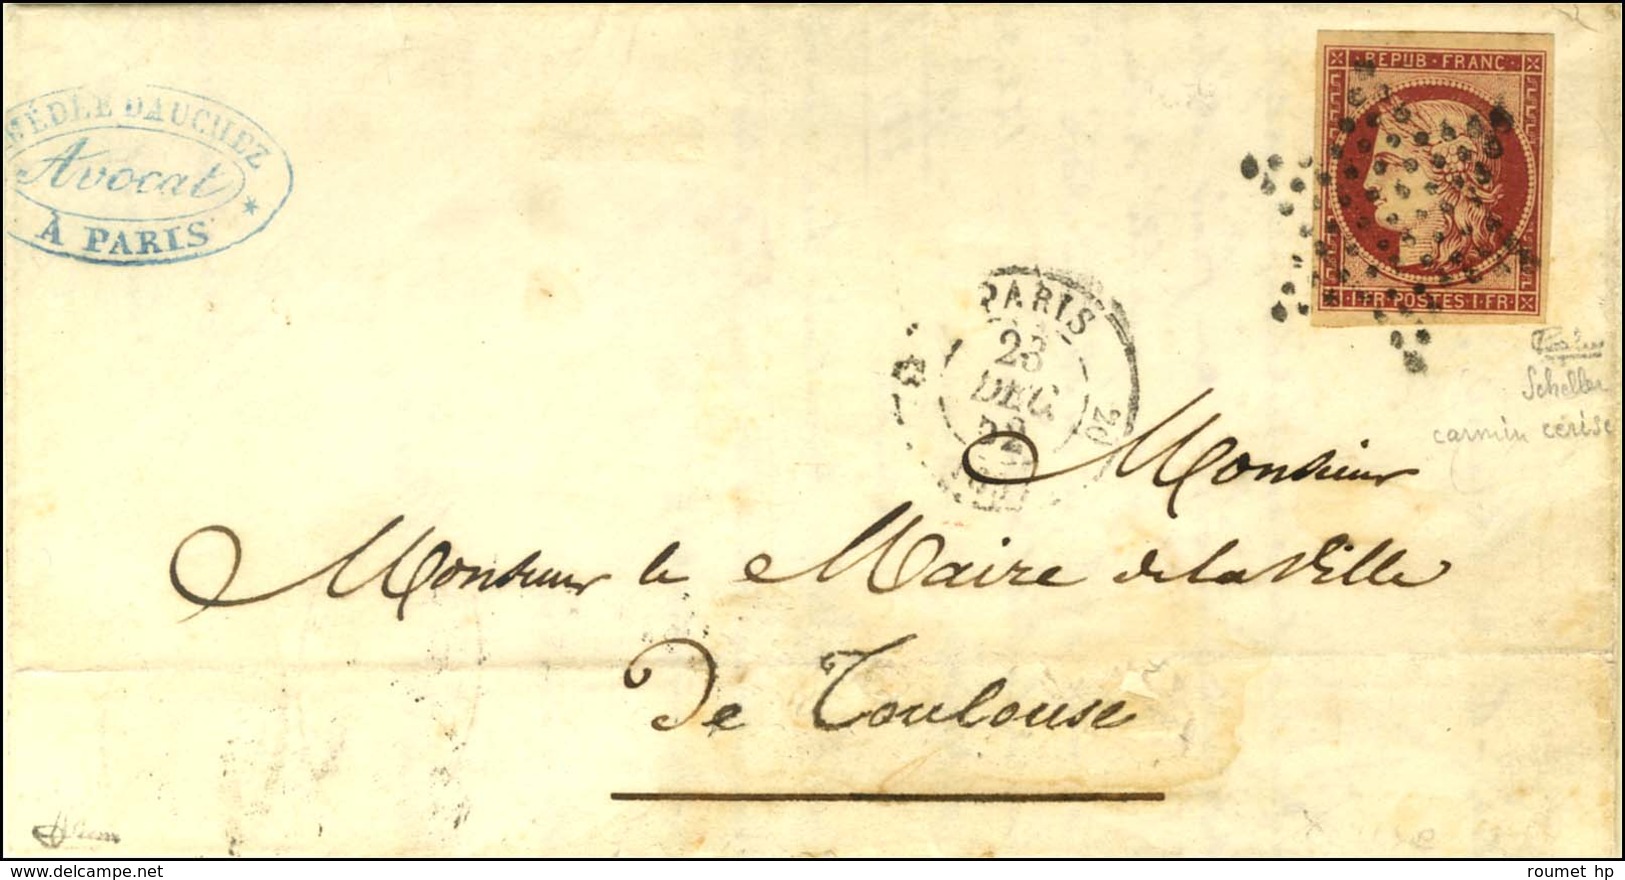 MÉDÉE DAUCHEZ
Avocat
À PARIS
REPUB · FRANC
1 · FR · POSTES · 1 · FR
PARIS
23
DEC.
52
20
Scheller
carmin cerise
Monsieur
Monsieur le Maire de la Ville
De Toulouse
roumet hp